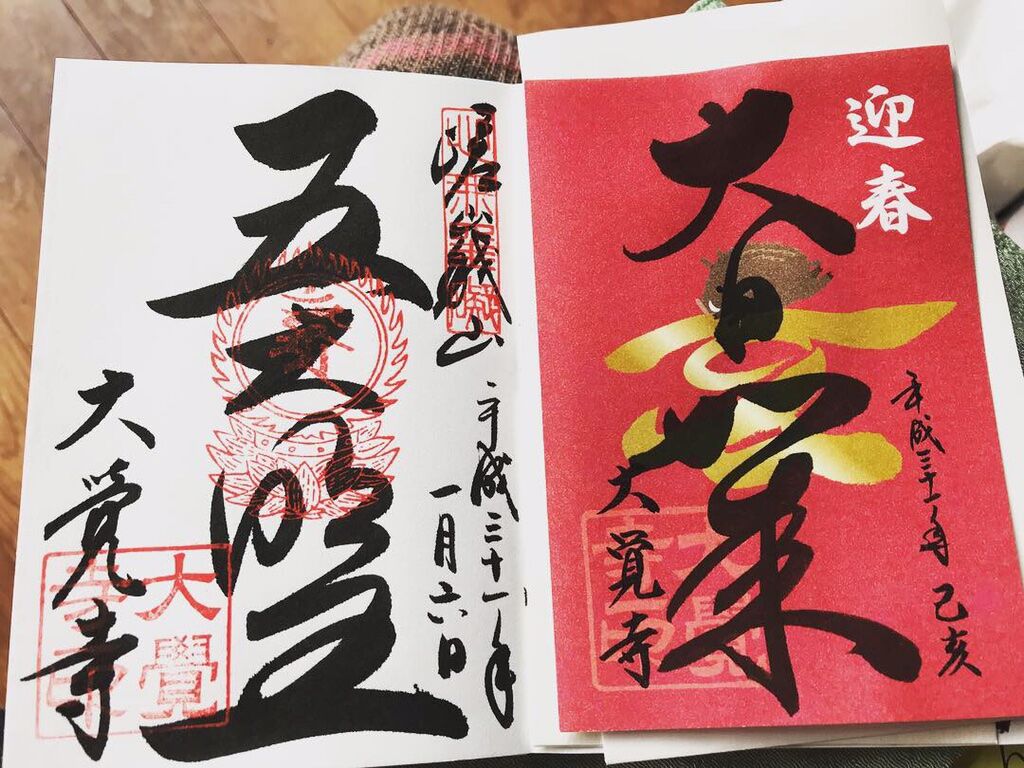 迎春
平成三十一年 己亥
大日如来
大覺寺
嵯峨山
平成三十一年
一月六日
五大明王
大覚寺
大覺